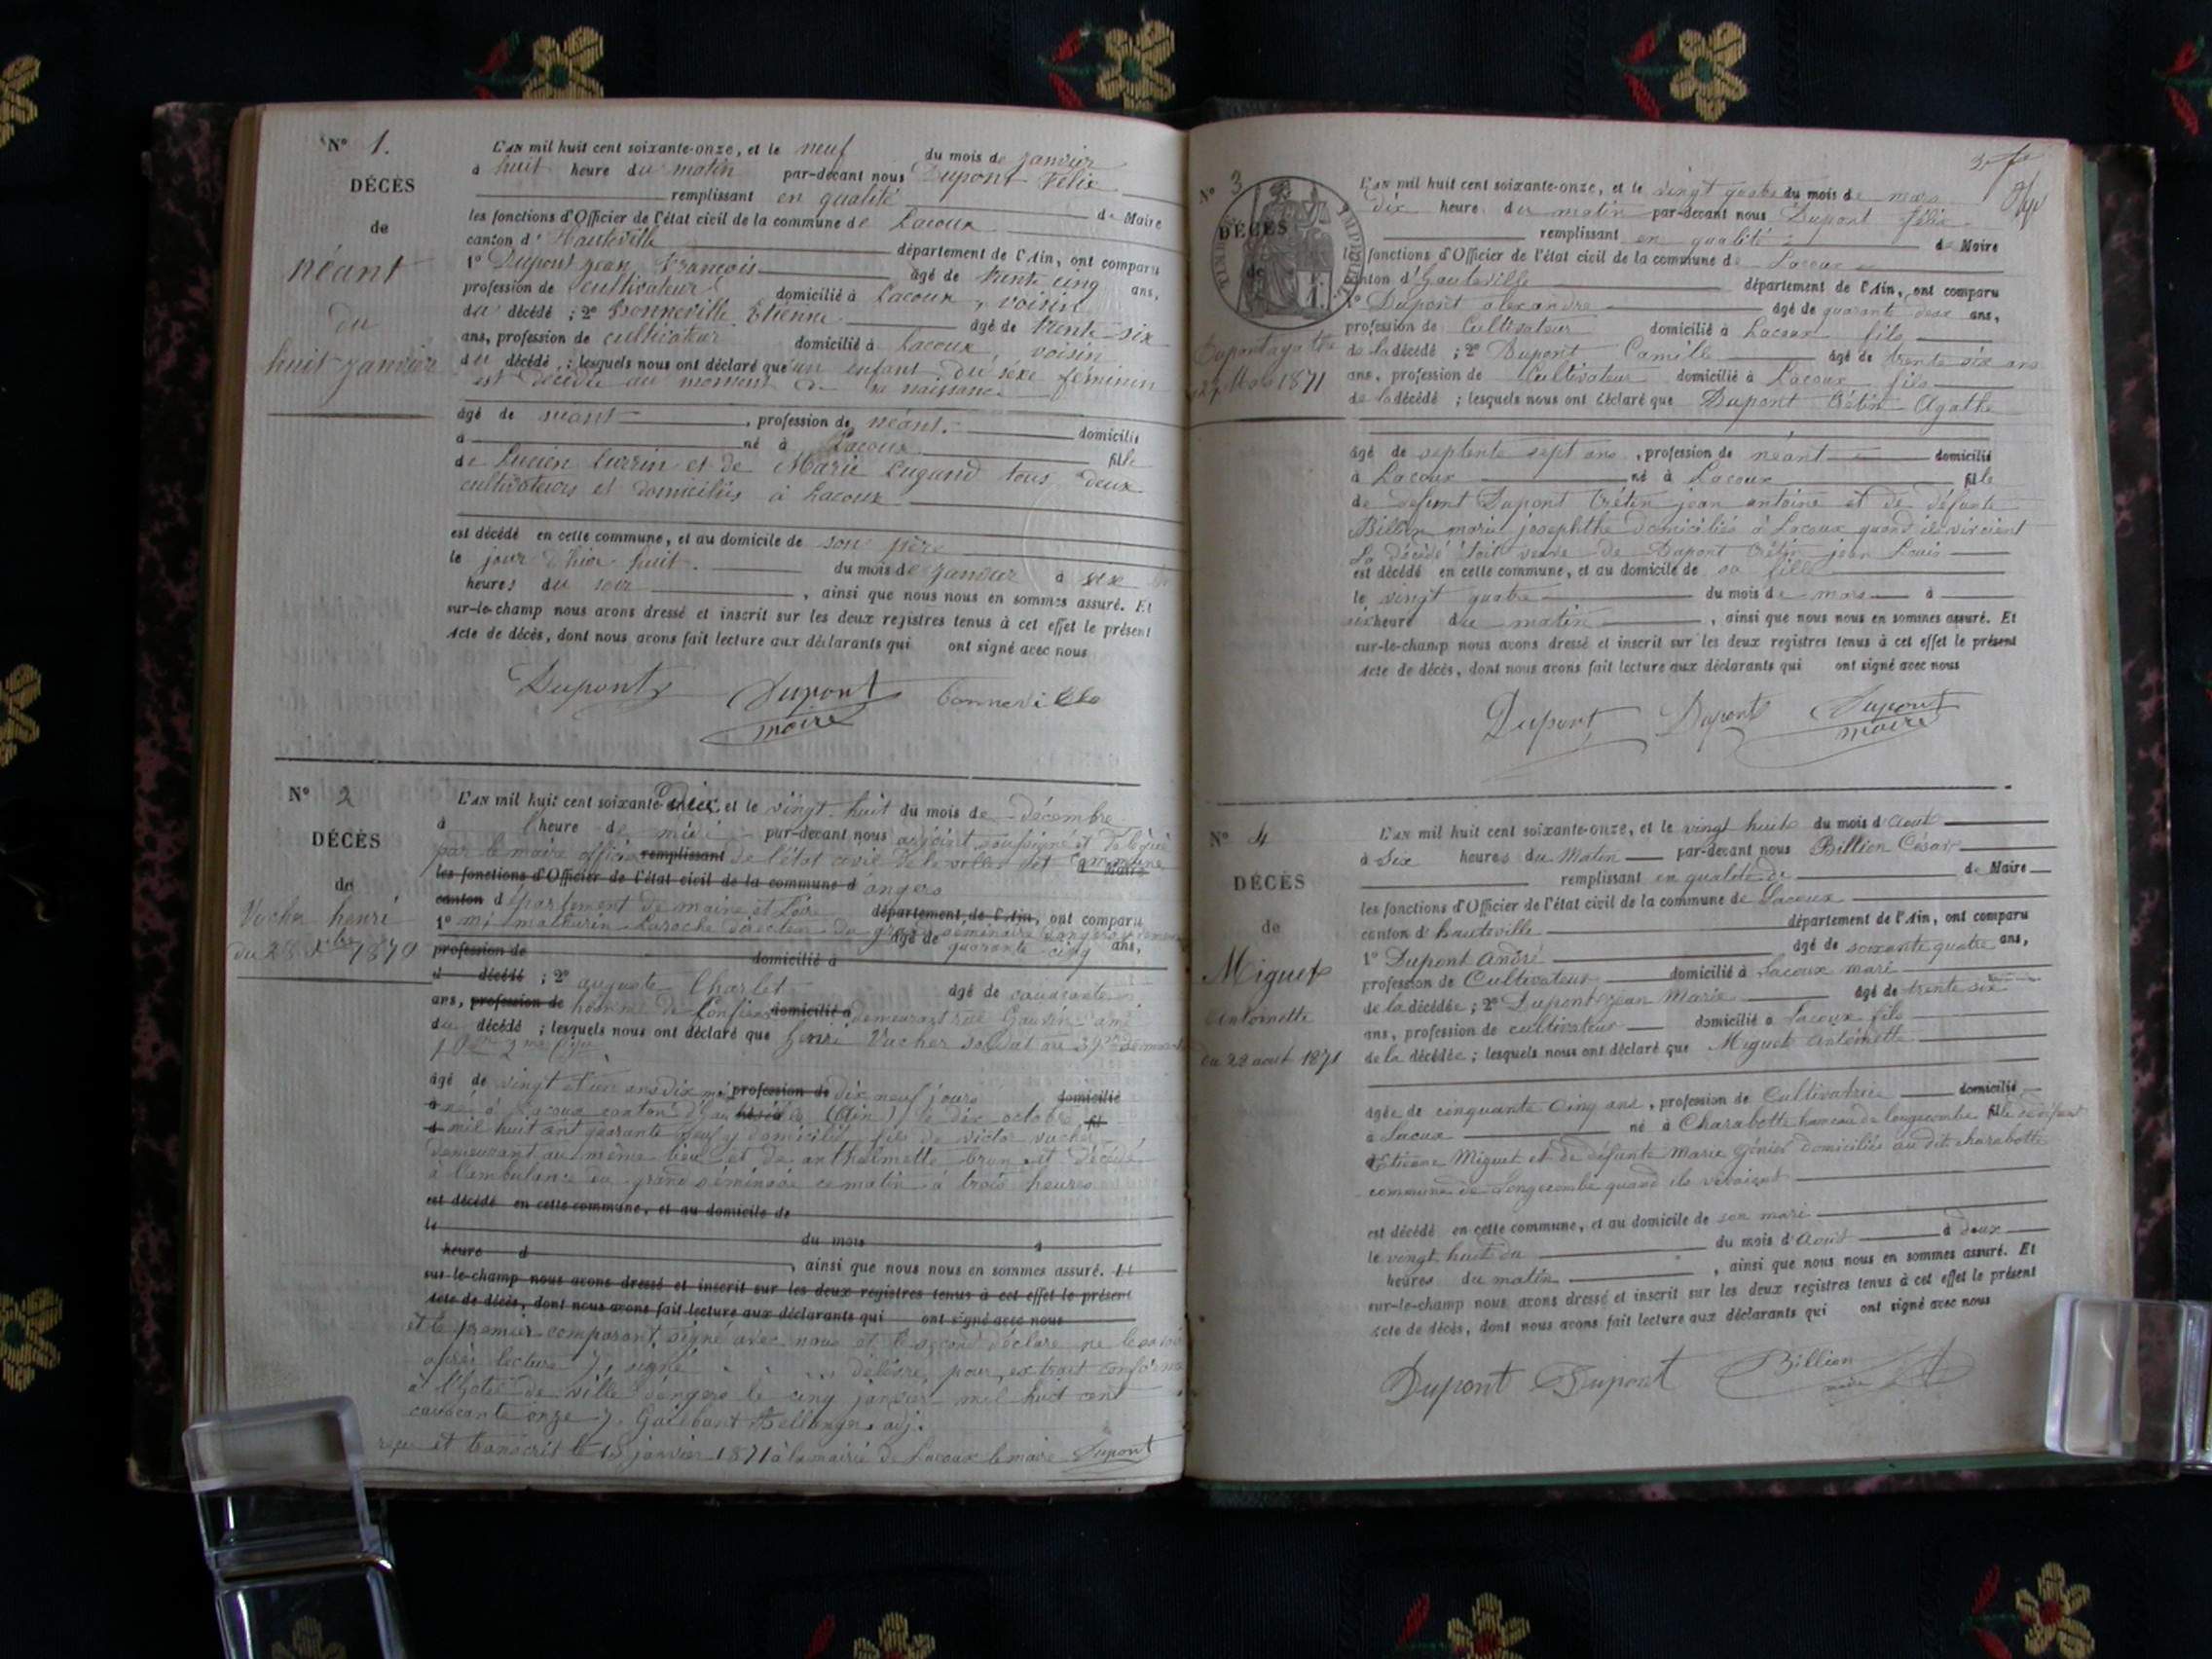 N° 1.
DÉCÈS
de
néant
du
huit janvier
L'AN mil huit cent soixante-onze, et le neuf du mois de janvier
à huit heure du matin par-devant nous Dupont Félix
remplissant en qualité de Maire
les fonctions d'Officier de l'état civil de la commune de Lacoux
canton d' Hauteville département de l'Ain, ont comparu
1° Dupont jean François âgé de trente cinq ans,
profession de cultivateur domicilié à Lacoux, voisin
du décédé ; 2° Bonneville Etienne âgé de trente-six
ans, profession de cultivateur domicilié à Lacoux, voisin
du décédé ; lesquels nous ont déclaré qu'un enfant du sexe féminin
est décédé au moment de sa naissance
âgé de néant, profession de néant. domicilié
à né à Lacoux fille
de Lucien et de Marie Lugand tous deux
cultivateurs et domiciliés à Lacoux
est décédé en cette commune, et au domicile de son père
le jour d'hier huit. du mois de janvier à six
heures du soir, ainsi que nous nous en sommes assuré. Et
sur-le-champ nous avons dressé et inscrit sur les deux registres tenus à cet effet le présent
acte de décès, dont nous avons fait lecture aux déclarants qui ont signé avec nous
Dupont Dupont bonneville
maire
N° 2
DÉCÈS
de
Vacher henri
du 28 Xbre 1870
L'AN mil huit cent soixante-dix, et le vingt-huit du mois de décembre
à l'heure de midi par-devant nous adjoint soussigné et délégué
par le maire officier remplissant de l'état civil de la ville commune
les fonctions d'Officier de l'état civil de la commune d'angers
canton département de maine et Loire département de l'Ain, ont comparu
1° mathurin Laroche du grand séminaire
profession de âgé de quarante cinq ans,
domicilié à
d décédé ; 2° auguste Charlet âgé de
ans, profession de homme de domicilié à demeurant rue
du décédé ; lesquels nous ont déclaré que henri Vacher soldat au
âgé de vingt et un ans dix mois profession de dix neuf jours domicilié
à né à Lacoux canton d'hauteville (Ain) le dix octobre fil
d mil huit cent quarante neuf y domicilié, fils de victor vacher
demeurant au même lieu et de anthelmette brun est décédé
à l'ambulance du grand séminaire ce matin à trois heures
est décédé en cette commune, et au domicile de
le
du mois à
heure d
, ainsi que nous nous en sommes assuré. Et
sur-le-champ nous avons dressé et inscrit sur les deux registres tenus à cet effet le présent
acte de décès, dont nous avons fait lecture aux déclarants qui ont signé avec nous
et le premier comparant signé avec nous et le second déclare ne le savoir
après lecture signé pour extrait conforme
à l'hotel de ville d'angers le cinq janvier mil huit cent
onze adj.
reçu et transcrit le 15 janvier 1871 à la mairie de Lacoux le maire Dupont
N° 3
DÉCÈS
de
Dupont agathe
Mars 1871
TIMBRE IMPERIAL
L'AN mil huit cent soixante-onze, et le vingt quatre du mois de mars
dix heure du matin par-devant nous Dupont félix
remplissant en qualité de Maire
les fonctions d'Officier de l'état civil de la commune de Lacoux
canton d'hauteville département de l'Ain, ont comparu
1° Dupont alexandre âgé de quarante deux ans,
profession de Cultivateur domicilié à Lacoux fils
de la décédé ; 2° Dupont Camille âgé de trente six ans
ans, profession de Cultivateur domicilié à Lacoux fils
de la décédé ; lesquels nous ont déclaré que Dupont Crétin Agathe
âgé de septente sept ans, profession de néant domicilié
à Lacoux né à Lacoux fille
de défunt Dupont Crétin jean antoine et de défunte
Billion marie josephthe domiciliés à Lacoux quand ils vivaient
La décédé était veuve de Dupont Crétin jean Louis
est décédé en cette commune, et au domicile de sa fille
le vingt quatre du mois de mars à
six heure du matin, ainsi que nous nous en sommes assuré. Et
sur-le-champ nous avons dressé et inscrit sur les deux registres tenus à cet effet le présent
acte de décès, dont nous avons fait lecture aux déclarants qui ont signé avec nous
Dupont Dupont Dupont
maire
N° 4
DÉCÈS
de
Miguet
Antoinette
du 28 aout 1871
L'AN mil huit cent soixante-onze, et le vingt huit du mois d'Aout
à Six heures du Matin par-devant nous Billion César
remplissant en qualité de de Maire
les fonctions d'Officier de l'état civil de la commune de Lacoux
canton d'hauteville département de l'Ain, ont comparu
1° Dupont André âgé de soixante quatre ans,
profession de Cultivateur domicilié à Lacoux mari
de la décédée ; 2° Dupont jean Marie âgé de trente six
ans, profession de cultivateur domicilié à Lacoux fils
de la décédée ; lesquels nous ont déclaré que Miguet Antoinette
âgée de cinquante cinq ans, profession de Cultivatrice domicilié
à Lacoux né à Charabotte hameau de longecombe fille de défunt
Etienne Miguet et de défunte Marie Génier domiciliés au dit charabotte
commune de Longecombe quand ils vivaient
est décédé en cette commune, et au domicile de son mari
le vingt huit du du mois d'Aout à deux
heures du matin, ainsi que nous nous en sommes assuré. Et
sur-le-champ nous avons dressé et inscrit sur les deux registres tenus à cet effet le présent
acte de décès, dont nous avons fait lecture aux déclarants qui ont signé avec nous
Dupont Dupont Billion
maire